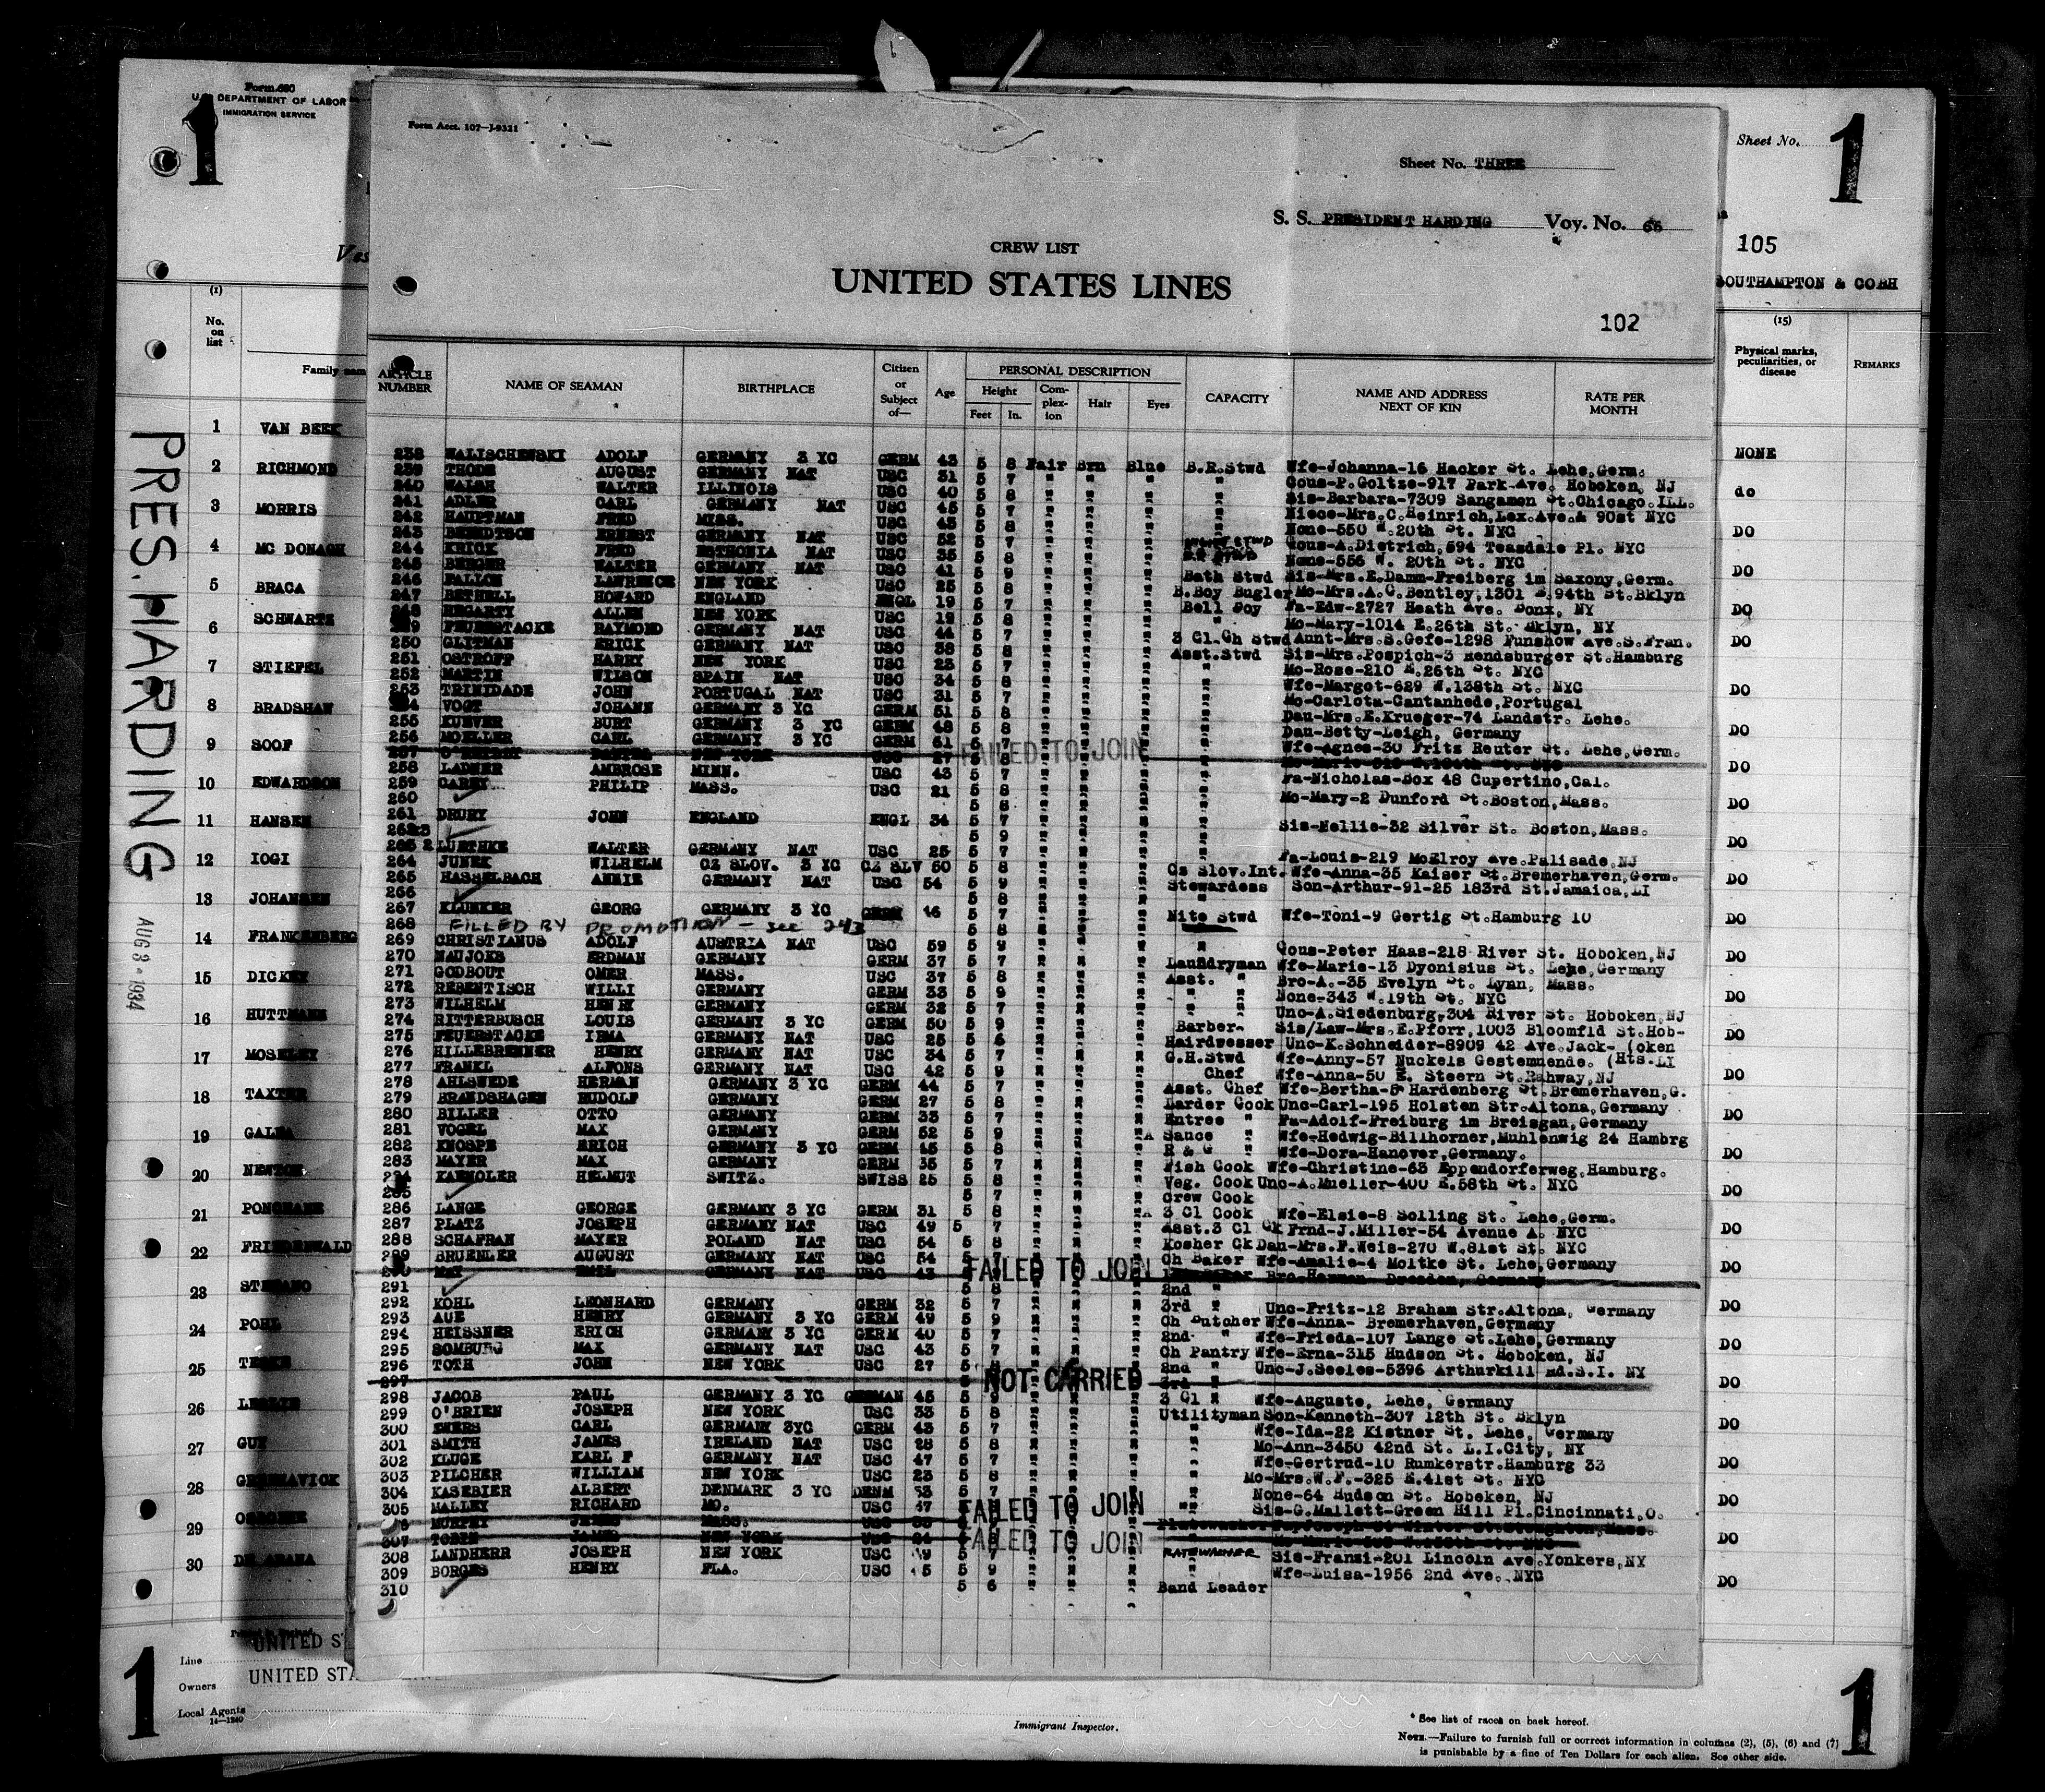 Form 680
U.S. DEPARTMENT OF LABOR
IMMIGRATION SERVICE
1
Form Acct. 107—J-9321
Sheet No. THREE
Sheet No.
1
S. S. PRESIDENT HARDING Voy. No. 66
CREW LIST
UNITED STATES LINES
102
105
SOUTHAMPTON & COBH
(1)
No. on list
Family nam
(15)
Physical marks, peculiarities, or disease
REMARKS
ARTICLE NUMBER
NAME OF SEAMAN
BIRTHPLACE
Citizen or Subject of—
Age
PERSONAL DESCRIPTION
Height
Feet In.
Complexion
Hair
Eyes
CAPACITY
NAME AND ADDRESS NEXT OF KIN
RATE PER MONTH
PRES. HARDING
AUG 3 - 1934
1 VAN BEEK NONE
2 RICHMOND do
3 MORRIS DO
4 MC DONAGH DO
5 BRACA DO
6 SCHWARTZ DO
7 STIEFEL DO
8 BRADSHAW DO
9 SOOF DO
10 EDWARDSON DO
11 HANSEN DO
12 IOGI DO
13 JOHANSEN DO
14 FRANKENBERG DO
15 DICKEY DO
16 HUTTMANN DO
17 MOSELEY DO
18 TAXTER DO
19 DO
20 NEWTON DO
21 DO
22 FRIEDENWALD DO
23 DO
24 POHL DO
25 DO
26 LESLIE DO
27 GUY DO
28 DO
29 OSBORNE DO
30 DO
238 WALISCHEWSKI ADOLF GERMANY 3 YC GERM 43 5 8 Fair Brn Blue B.R.Stwd Wfe-Johanna-16 Hacker St. Lehe,Germ.
239 THODE AUGUST GERMANY NAT USC 31 5 7 " " " " Cous-P.Goltze-917 Park Ave. Hoboken, NJ
240 WALSH WALTER ILLINOIS USC 40 5 8 " " " " Sis-Barbara-7309 Sangamon St.Chicago.ILL.
241 ADLER CARL GERMANY NAT USC 45 5 7 " " " " Niece-Mrs.C.Heinrich,Lex.Ave.& 90st NYC
242 HAUPTMAN FRED MISS. USC 43 5 8 " " " " None-550 W.20th St. NYC
243 BENEDTSON ERNEST GERMANY NAT USC 52 5 7 " " " Cous-A.Dietrich,594 Teasdale Pl. NYC
244 KRICK FRED ESTHONIA NAT USC 35 5 8 " " " None-556 W. 20th St. NYC
245 BERGER WALTER GERMANY NAT USC 41 5 9 " " " Bath Stwd Sis-Mrs.E.Damm-Freiberg im Saxony,Germ.
246 FALLON LAWRENCE NEW YORK USC 25 5 8 " " " B.Boy Bugler Mo-Mrs.A.C.Bentley,1301 E.94th St.Bklyn
247 BETHELL HOWARD ENGLAND ENGL 19 5 7 " " " Bell Boy Fa-Edw-2727 Heath Ave. Bonx, NY
248 HEGARTY ALLEN NEW YORK USC 19 5 8 " " " " Mo-Mary-1014 E.26th St. Bklyn, NY
249 FEUERSTACKE RAYMOND GERMANY NAT USC 44 5 7 " " " 3 Cl.Ch Stwd Aunt-Mrs.S.Gefe-1298 Funshow Ave.S.Fran.
250 GLITMAN ERICK GERMANY NAT USC 38 5 8 " " " Asst.Stwd Sis-Mrs.Pospich-3 Rendsburger St.Hamburg
251 OSTROFF HARRY NEW YORK USC 23 5 7 " " " " Mo-Rose-210 E.26th St. NYC
252 MARTIN WILSON SPAIN NAT USC 34 5 8 " " " " Wfe-Margot-629 W.138th St. NYC
253 TRINIDADE JOHN PORTUGAL NAT USC 31 5 7 " " " " Mo-Carlota-Cantanhede,Portugal
254 VOGT JOHANN GERMANY 3 YC GERM 51 5 8 " " " " Dau-Mrs.E.Krueger-74 Landstr. Lehe.
255 KUEVER BURT GERMANY 3 YC GERM 48 5 8 " " " " Dau-Betty-Leigh, Germany
256 MOELLER CARL GERMANY 3 YC GERM 51 5 7 " " " " Wfe-Agnes-30 Fritz Reuter St. Lehe,Germ.
257 NEW YORK USC 27 5 8 FAILED TO JOIN
258 LADNER AMBROSE MINN. USC 43 5 7 " " " " Fa-Nicholas-Box 48 Cupertino,Cal.
259 CAREY PHILIP MASS. USC 21 5 8 " " " " Mo-Mary-2 Dunford St.Boston,Mass.
260 5 8 " " " "
261 DRURY JOHN ENGLAND ENGL 34 5 7 " " " " Sis-Nellie-32 Silver St. Boston,Mass.
262 5 9 " " " "
263 LUETHKE WALTER GERMANY NAT USC 25 5 7 " " " " Fa-Louis-219 McElroy Ave.Palisade,NJ
264 JUNEK WILHELM CZ SLOV. 3 YC CZ SLV 50 5 8 " " " Cz Slov.Int. Wfe-Anna-35 Kaiser St.Bremerhaven,Germ.
265 HASSELBACH ANNIE GERMANY NAT USC 54 5 9 " " " Stewardess Son-Arthur-91-25 183rd St.Jamaica,LI
266 5 8 " " " "
267 KLUNKER GEORG GERMANY 3 YC GERM 46 5 7 " " " Nite Stwd Wfe-Toni-9 Gertig St.Hamburg 10
268 FILLED BY PROMOTION - see 243 5 8
269 CHRISTIANUS ADOLF AUSTRIA NAT USC 59 5 9 " " " " Cous-Peter Haas-218 River St. Hoboken,NJ
270 NAUJOKS ERDMAN GERMANY GERM 37 5 7 " " " Laundryman Wfe-Marie-13 Dyonisius St. Lehe,Germany
271 GODBOUT OMER MASS. USC 37 5 8 " " " Asst. " Bro-A.-35 Evelyn St. Lynn, Mass.
272 REBENTISCH WILLI GERMANY GERM 33 5 9 " " " " " None-343 W.19th St. NYC
273 WILHELM HENRY GERMANY GERM 32 5 7 " " " " " Unc-A.Siedenburg,304 River St. Hoboken,NJ
274 RITTERBUSCH LOUIS GERMANY 3 YC GERM 50 5 9 " " " Barber Sis/Law-Mrs.E.Pforr,1003 Bloomfld St.Hob-
275 FEUERSTACKE IRMA GERMANY NAT USC 25 5 6 " " " Hairdwesser Unc-K.Schneider-8909 42 Ave.Jack- (oken
276 HILLEBRENNER HENRY GERMANY NAT USC 34 5 7 " " " G.H.Stwd Wfe-Anny-57 Nuckels Gestemuende. (Hts.LI
277 FRANKL ALFONS GERMANY NAT USC 42 5 9 " " " Chef Wfe-Anna-50 E. Steern St.Rahway,NJ
278 AHLSWEDE HERMAN GERMANY 3 YC GERM 44 5 7 " " " Asst. Chef Wfe-Bertha-5 Hardenberg St.Bremerhaven,G.
279 BRANDSHAGEN RUDOLF GERMANY GERM 27 5 8 " " " Larder Cook Unc-Carl-195 Holsten Str.Altona,Germany
280 BILLER OTTO GERMANY GERM 33 5 7 " " " Entree " Fa-Adolf-Freiburg im Breisgau,Germany
281 VOGEL MAX GERMANY GERM 52 5 9 " " " Sauce " Wfe-Hedwig-Billhorner,Muhlenwig 24 Hambrg
282 KNOSPE ERICH GERMANY 3 YC GERM 45 5 8 " " " R & G " Wfe-Dora-Hanover,Germany.
283 MAYER MAX GERMANY GERM 35 5 7 " " " Fish Cook Wfe-Christine-63 Eppendorferweg,Hamburg.
284 KAEMOLER HELMUT SWITZ. SWISS 25 5 8 " " " Veg. Cook Unc-A.Mueller-400 E.58th St. NYC
285 5 7 " " " Crew Cook
286 LANGE GEORGE GERMANY 3 YC GERM 31 5 8 " " " 3 Cl Cook Wfe-Elsie-8 Solling St. Lehe,Germ.
287 PLATZ JOSEPH GERMANY NAT USC 49 5 7 " " " Asst.3 Cl Ck Frnd-J.Miller-54 Avenue A. NYC
288 SCHAFRAN MAYER POLAND NAT USC 54 5 8 " " " Kosher Ck Dau-Mrs.F.Weis-270 W.81st St. NYC
289 BRUENLER AUGUST GERMANY NAT USC 54 5 7 " " " Ch Baker Wfe-Amalie-4 Moltke St. Lehe,Germany
290 MAY EMIL GERMANY NAT USC 43 FAILED TO JOIN Bro-Herman- Dresden, Germany
291 5 8 " " " 2nd "
292 KOHL LEONHARD GERMANY GERM 32 5 7 " " " 3rd " Unc-Fritz-12 Braham Str.Altona, Germany
293 AUE HENRY GERMANY 3 YC GERM 49 5 9 " " " Ch Butcher Wfe-Anna- Bremerhaven,Germany
294 HEISSNER ERICH GERMANY 3 YC GERM 40 5 7 " " " 2nd " Wfe-Frieda-107 Lange St.Lehe,Germany
295 SOMBURG MAX GERMANY NAT USC 43 5 7 " " " Ch Pantry Wfe-Erna-315 Hudson St. Hoboken, NJ
296 TOTH JOHN NEW YORK USC 27 5 8 " " " 2nd " Unc-J.Seeles-5396 Arthurkill Rd.S.I. NY
297 NOT CARRIED 3rd "
298 JACOB PAUL GERMANY 3 YC GERMAN 45 5 9 " " " 3 Cl " Wfe-Auguste, Lehe, Germany
299 O'BRIEN JOSEPH NEW YORK USC 33 5 8 " " " Utilityman Son-Kenneth-307 12th St. Bklyn
300 EWERS CARL GERMANY 3YC GERM 43 5 7 " " " " Wfe-Ida-22 Kistner St. Lehe, Germany
301 SMITH JAMES IRELAND NAT USC 28 5 8 " " " " Mo-Ann-3450 42nd St. L.I.City, NY
302 KLUGE KARL F GERMANY NAT USC 47 5 7 " " " " Wfe-Gertrud-10 Rumkerstr.Hamburg 33
303 PILCHER WILLIAM NEW YORK USC 23 5 8 " " " " Mo-Mrs.W.F.-325 E.41st St. NYC
304 KASEBIER ALBERT DENMARK 3 YC DENM 53 5 7 " " " " None-64 Hudson St. Hoboken, NJ
305 MALLEY RICHARD MO. USC 47 " " " " Sis-G.Mallett-Green Hill Pl.Cincinnati,O.
MURPHY JAMES MASS. USC FAILED TO JOIN
307 TOBIN JAMES NEW YORK USC 24 FAILED TO JOIN
308 LANDHERR JOSEPH NEW YORK USC 5 7 " " " PLATEWASHER Sis-Franzi-201 Lincoln Ave.Yonkers,NY
309 BORGES HENRY FLA. USC 5 9 " " " " Wfe-Luisa-1956 2nd Ave. NYC
310 5 6 " " " Band Leader
1
Line UNITED S
Owners UNITED STA
Local Agents
14—1240
Immigrant Inspector.
* See list of races on back hereof.
NOTE.—Failure to furnish full or correct information in columns (2), (5), (6) and (7)
is punishable by a fine of Ten Dollars for each alien. See other side.
1